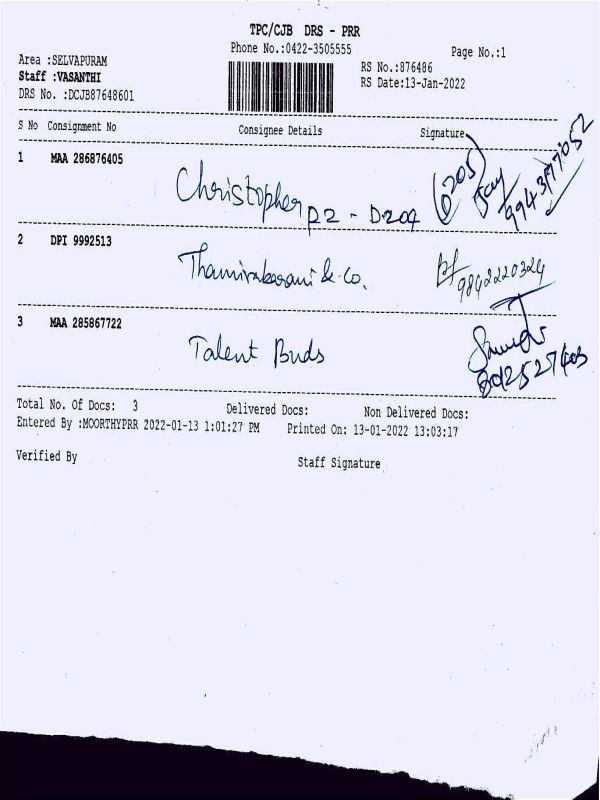 TPC/CJB DRS - PRR
Phone No.:0422-3505555
Page No.:1
Area :SELVAPURAM
Staff :VASANTHI
DRS No. :DCJB87648601
RS No.:876486
RS Date:13-Jan-2022
S No Consignment No Consignee Details Signature
1 MAA 286876405
Christopher D2 - D209
2 DPI 9992513
Thamirabarani & Co.
9842220324
3 MAA 285867722
Talent Buds
Total No. Of Docs: 3 Delivered Docs: Non Delivered Docs:
Entered By :MOORTHYPRR 2022-01-13 1:01:27 PM Printed On: 13-01-2022 13:03:17
Verified By Staff Signature